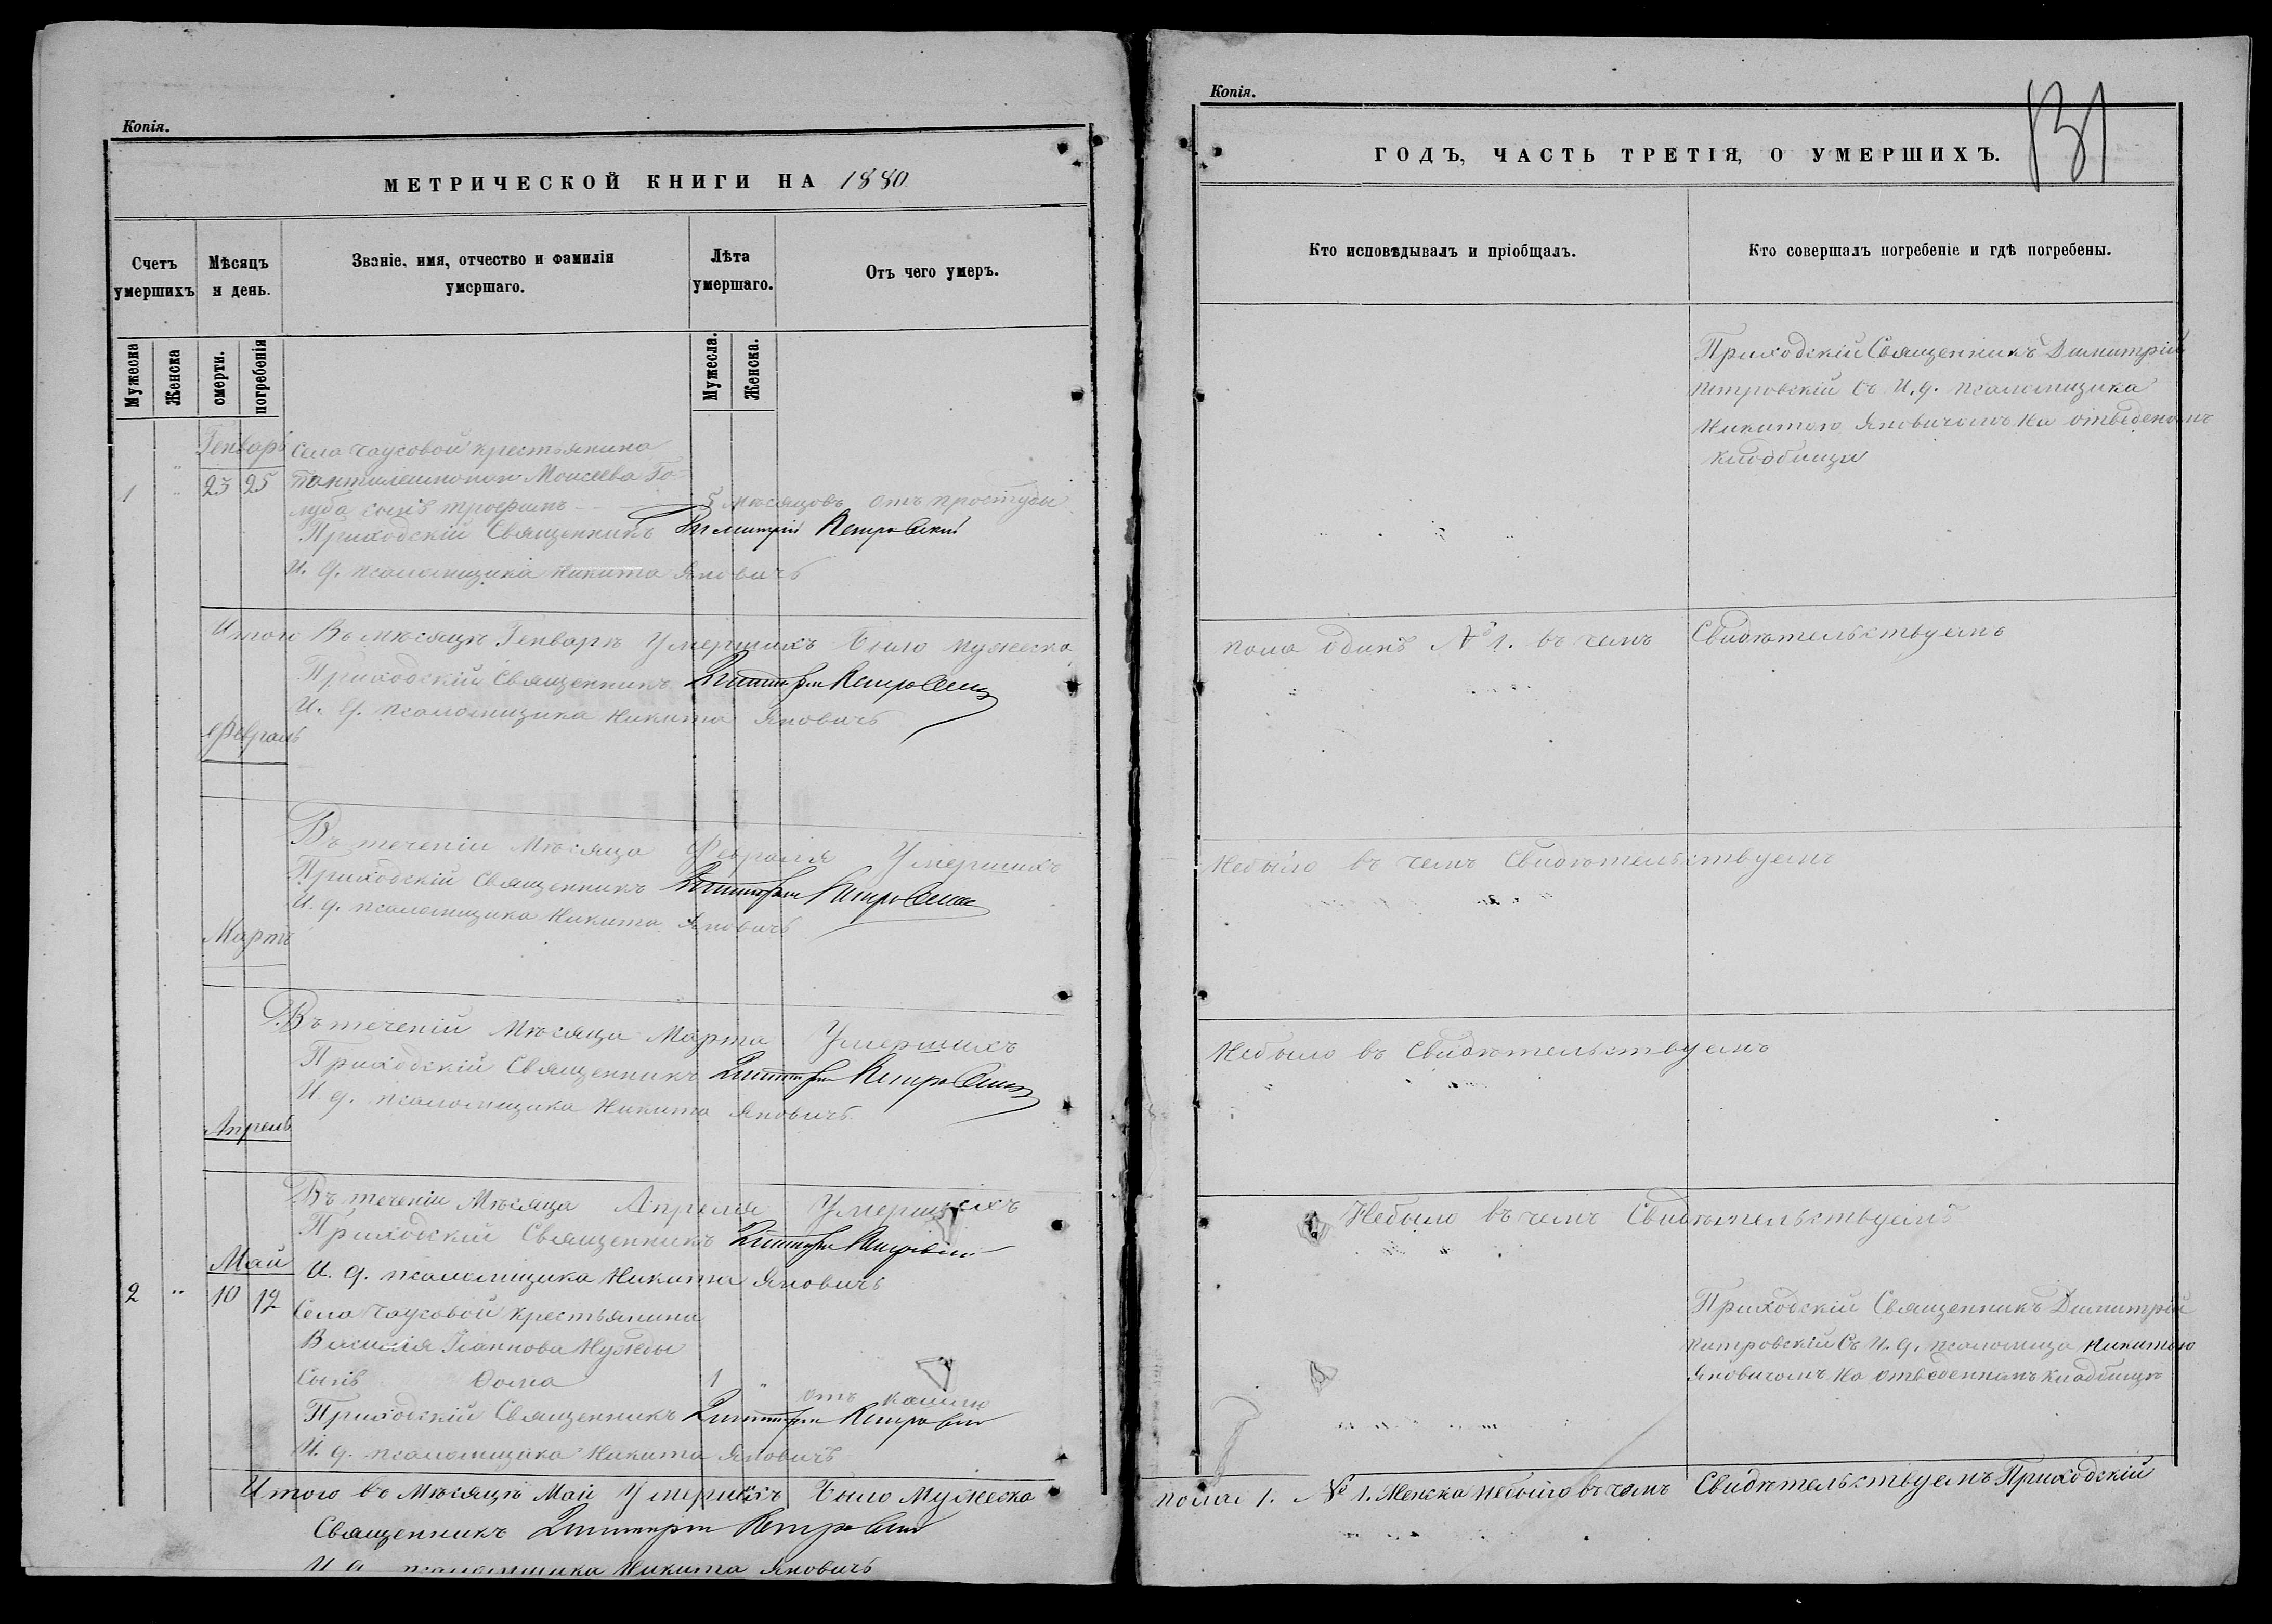 Копія.
МЕТРИЧЕСКОЙ КНИГИ НА 1880
Счетъ умершихъ
Мѣсяцъ и день.
Званіе, имя, отчество и фамилія умершаго.
Лѣта умершаго.
Отъ чего умеръ.
Мужеска
Женска
смерти.
погребенія
Мужеска.
Женска.
Генварь
Села Чаусовой крестьянина
1 " 23 25 Пантилеимона Моисеева Го-
луба сынъ Трофимъ 5 мѣсяцовъ отъ простуды
Приходскій Священникъ Димитрій Петровскій
И. д. псаломщика Никита Яновичъ
Итого Въ мѣсяцѣ Генварѣ Умершихъ было мужеска
Приходскій Священникъ Димитрій Петровскій
И. д. псаломщика Никита Яновичъ
Февраль
Въ теченіи Мѣсяца Февраля Умершихъ
Приходскій Священникъ Димитрій Петровскій
И. д. псаломщика Никита Яновичъ
Мартъ
Въ теченій Мѣсяца Марта Умершихъ
Приходскій Священникъ Димитрій Петровскій
И. д. псаломщика Никита Яновичъ
Апрель
Въ теченіи Мѣсяца Апреля Умершихъ
Приходскій Священникъ Димитрій Петровскій
Май
И. д. псаломщика Никита Яновичъ
2 " 10 12 Села Чаусовой крестьянина
Василія Іоаннова Нужды
Сынъ Фома 1 " отъ кашлю
Приходскій Священникъ Димитрій Петровскій
И. д. псаломщика Никита Яновичъ
Итого въ Мѣсяцѣ Май Умершихъ было Мужеска
Священникъ Димитрій Петровскій
И д псаломщика Никита Яновичъ
Копія.
131
ГОДЪ, ЧАСТЬ ТРЕТІЯ, О УМЕРШИХЪ.
Кто исповѣдывалъ и пріобщалъ.
Кто совершалъ погребеніе и гдѣ погребены.
Приходскій Священникъ Димитрій
Петровскій съ И. д. псаломщика
Никитою Яновичомъ на отведеномъ
кладбищи
пола одинъ № 1. въ чемъ Свидѣтельствуемъ
Небыло въ чемъ Свидѣтельствуемъ
Небыло въ Свидѣтельствуемъ
Небыло въ чемъ Свидѣтельствуемъ
Приходскій Священникъ Димитрій
Питровскій Съ И. д. псаломща Никитою
Яновичомъ на отведеннамъ кладбищѣ
пола 1. № 1. Женска небыло въ чемъ Свидѣтельствуемъ Приходскій